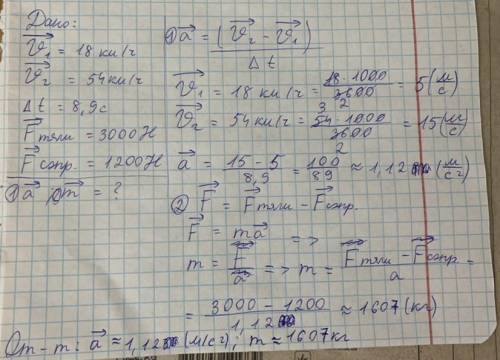 Дано:
V⃗₁ = 18 км/ч
V⃗₂ = 54 км/ч
Δt = 8,9с
F⃗тяги = 3000Н
F⃗сопр. = 1200Н
① a⃗ ② m = ?
① a⃗ = (V⃗₂ - V⃗₁) / Δt
V⃗₁ = 18 км/ч = 18·1000 / 3600 = 5 (м/с)
V⃗₂ = 54 км/ч = 54·1000 / 3600 = 15 (м/с)
a⃗ = 15 - 5 / 8,9 = 100 / 89 ≈ 1,12 (м/с²)
② F⃗ = F⃗тяги - F⃗сопр.
F⃗ = ma⃗ =>
m = F⃗ / a⃗ => m = F⃗тяги - F⃗сопр / a =
= 3000 - 1200 / 1,12 ≈ 1607 (кг)
От-т: a⃗ ≈ 1,12 (м/с²); m ≈ 1607кг